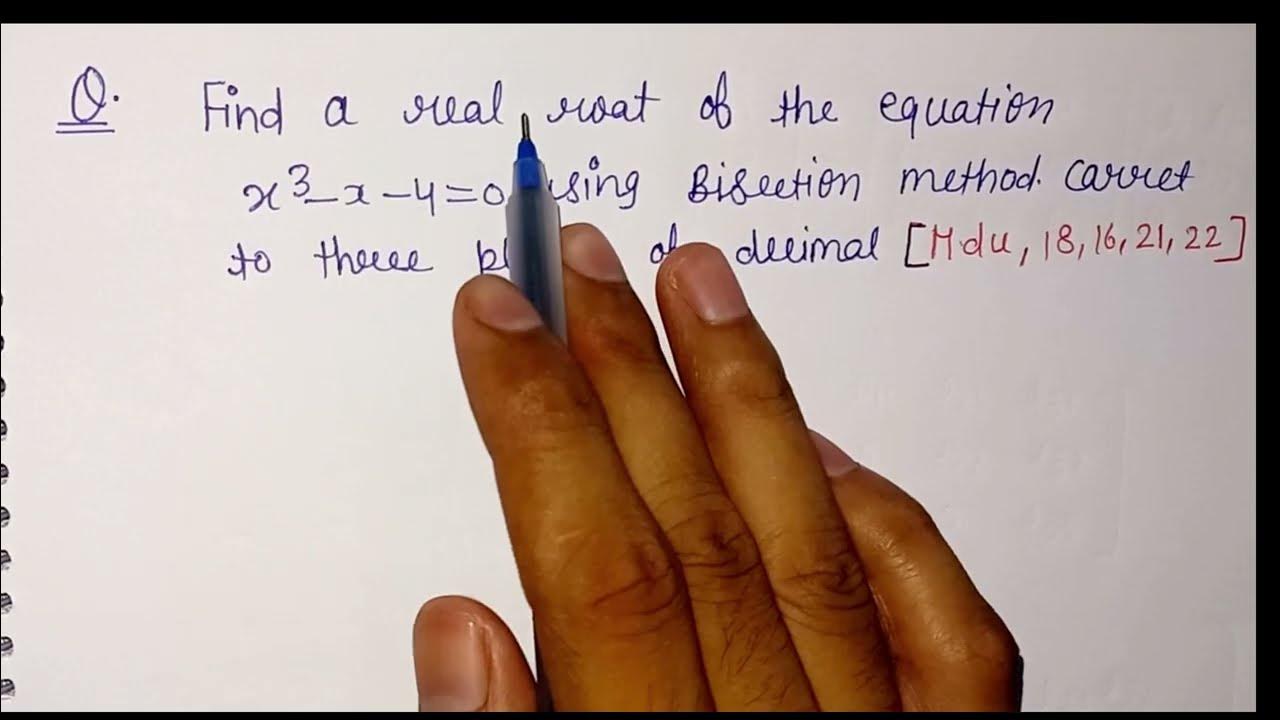 Q. Find a real root of the equation
x³-x-4=0 using Bisection method. Correct
to three of decimal [Mdu, 18, 16, 21, 22]